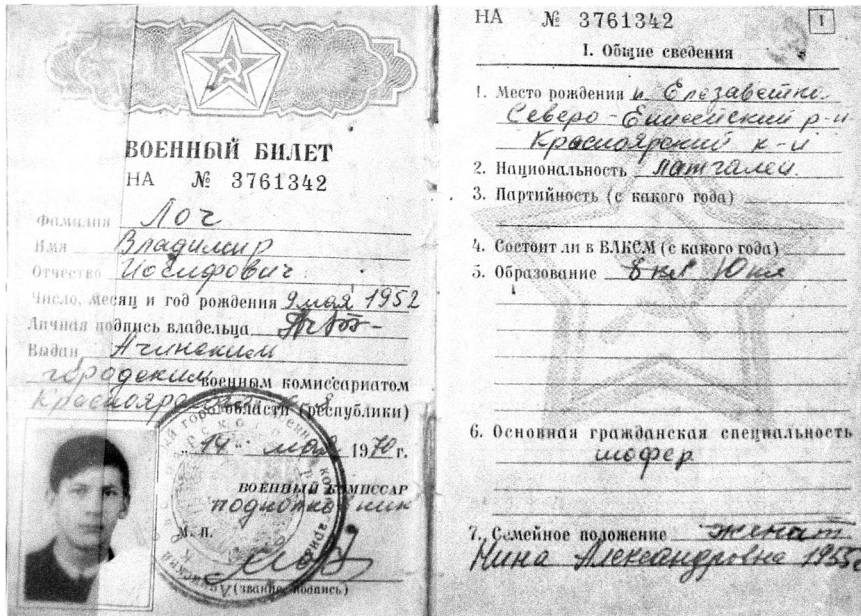 ВОЕННЫЙ БИЛЕТ
НА № 3761342
Фамилия Лоч
Имя Владимир
Отчество Иосифович
Число, месяц и год рождения 9 мая 1952
Личная подпись владельца
Выдан Ачинским
городским военным комиссариатом
Красноярского области (республики)
„14" мая 1970 г.
ВОЕННЫЙ КОМИССАР
подполковник
М. п.
(звание, подпись)
НА № 3761342
1
I. Общие сведения
1. Место рождения п. Елезаветин.
Северо-Енисейский р-н
Красноярский к-й
2. Национальность латгалец
3. Партийность (с какого года)
4. Состоит ли в ВЛКСМ (с какого года)
5. Образование 8 кл
6. Основная гражданская специальность
шофер
7. Семейное положение женат
Нина Александровна 1955 г